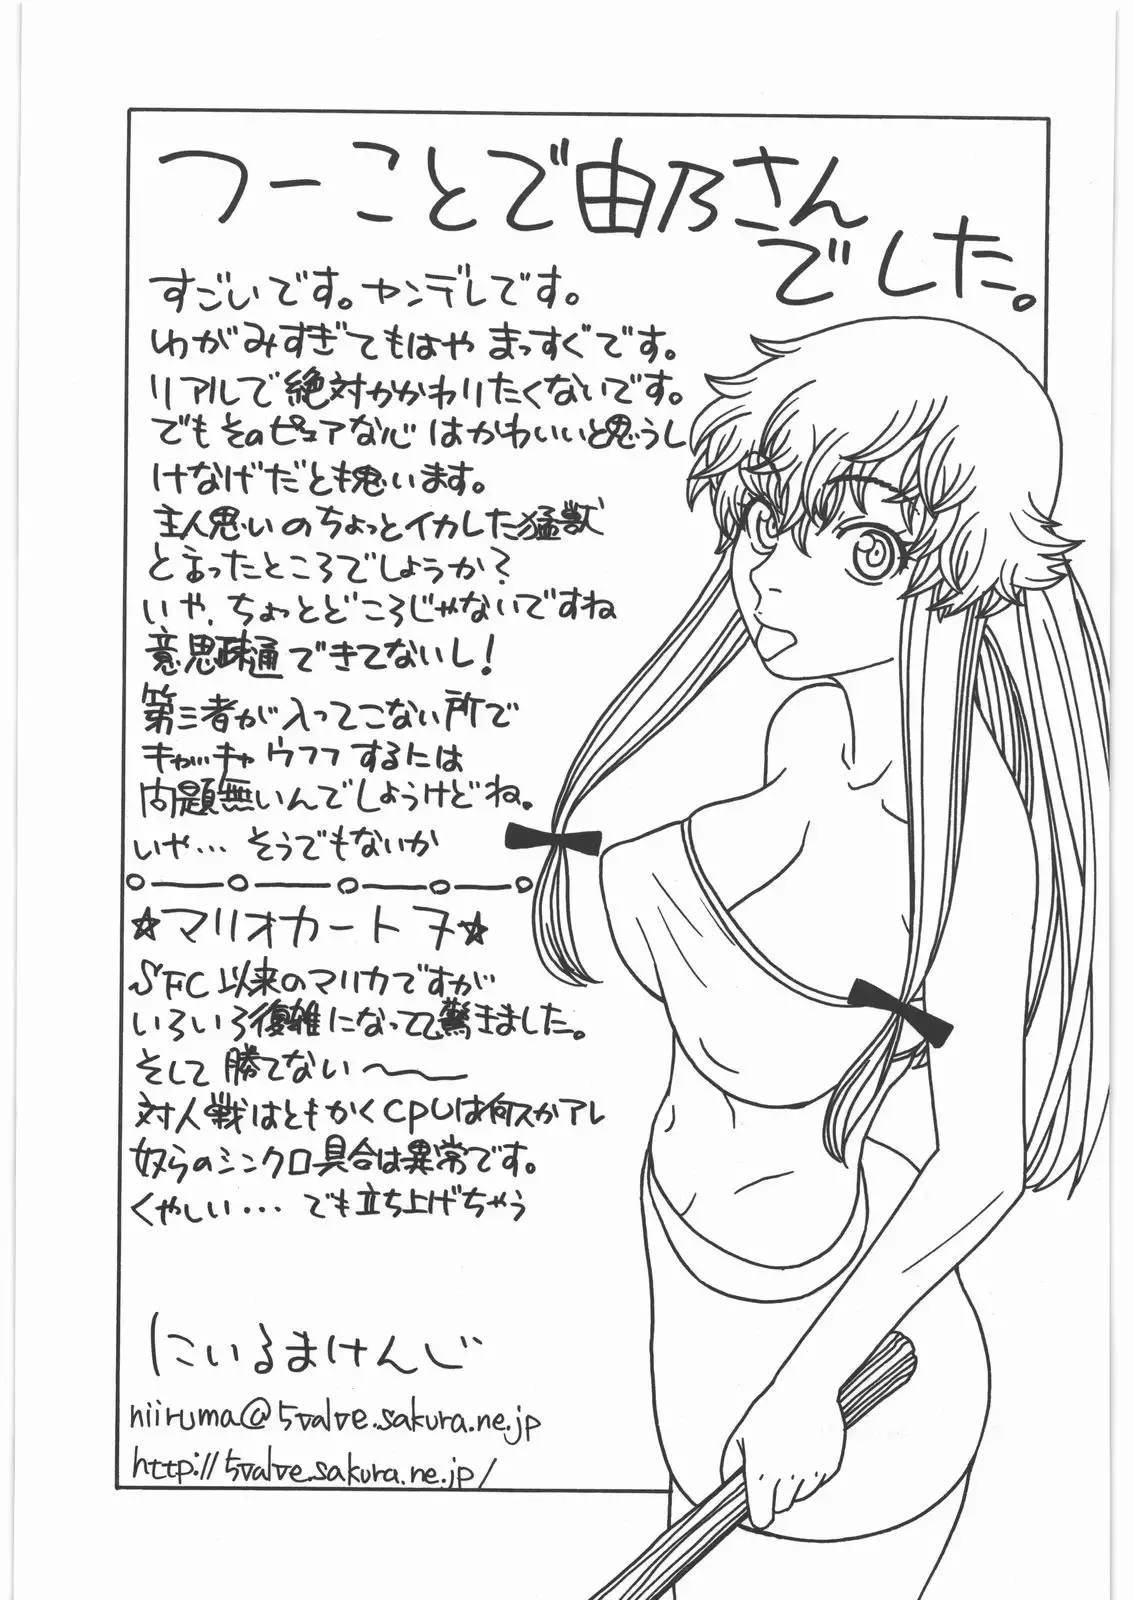 つーことで由乃さん
でした。
すごいです。ヤンデレです。
わがみすぎてもはや まっすぐです。
リアルで絶対かかわりたくないです。
でもそのピュアな心はかわいいと思うし
けなげだとも思います。
主人思いのちょっとイカした猛獣
といったところでしょうか?
いや、ちょっとどころじゃないですね
意思疎通できてないし!
第三者が入ってこない所で
キャッキャウフフするには
問題無いんでしょうけどね。
いや… そうでもないか
☆マリオカート7☆
SFC以来のマリカですが
いろいろ復雑になってて驚きました。
そして勝てない〜
対人戦はともかくCPUは何スかアレ
奴らのシンクロ具合は異常です。
くやしい… でも立ち上げちゃう
にいるまけんじ
niiruma@5valve.sakura.ne.jp
http://5valve.sakura.ne.jp/